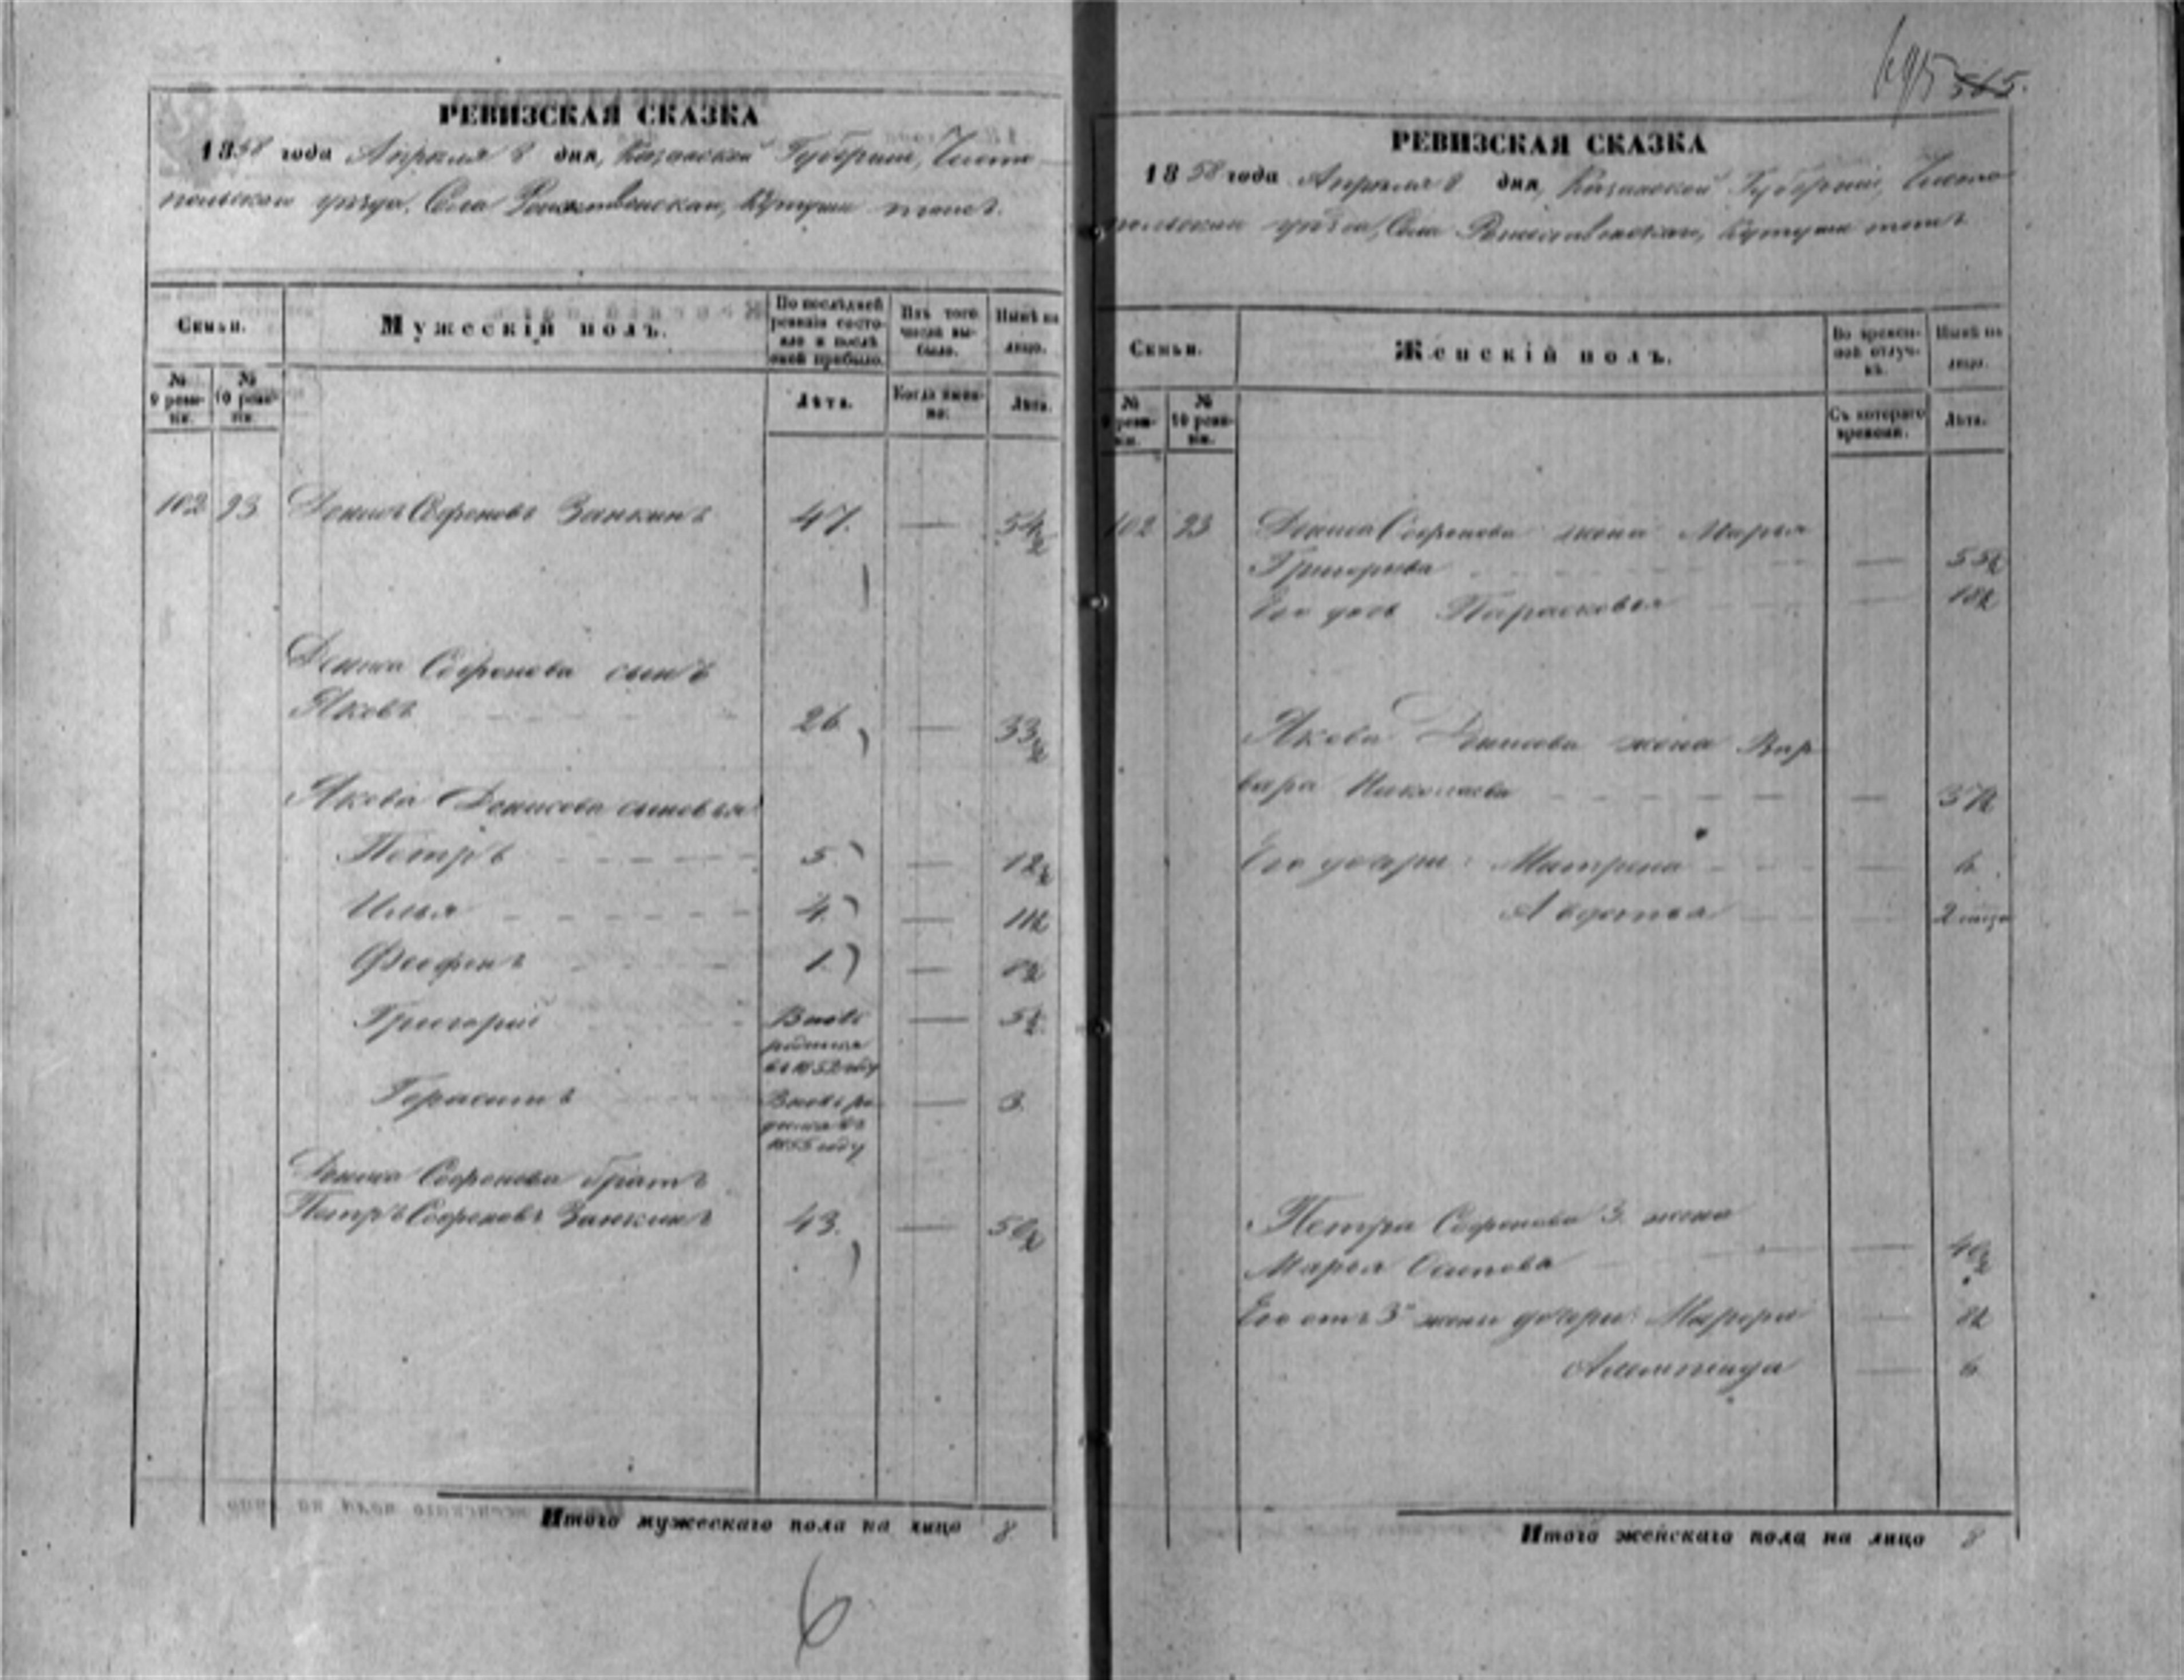 695 565.
РЕВИЗСКАЯ СКАЗКА
1858 года Апреля 8 дня, Казанской Губернии, Чисто-
польскаго уезда, Села Рождественскаго, Кутуши тожъ.
Семьи.
Мужескій полъ.
По послѣдней ревизіи состояло и послѣ оной прибыло.
Изъ того числа выбыло.
Нынѣ на лицо.
№ 9 ревизіи.
№ 10 ревизіи.
Лѣта.
Когда именно.
Лѣта.
102 93 Денисъ Софроновъ Занкинъ 47. — 54½
Дениса Софронова сынъ
Яковъ 26 — 33½
Якова Денисова сыновья
Петръ 5 — 12½
Илья 4. — 11½
Феофанъ 1 — 8½
Григорий Вновь — 5½
родился
въ 1852 году
Герасимъ Вновь ро- — 3
дился въ
1855 году
Дениса Софронова братъ
Петръ Софроновъ Занкинъ 43. — 50½
Итого мужескаго пола на лицо 8
6
РЕВИЗСКАЯ СКАЗКА
1858 года Апреля 8 дня, Казанской Губернии, Чисто-
польскаго уезда, Села Рождественскаго, Кутуши тожъ
Семьи.
Женскій полъ.
Во временной отлучкѣ.
Нынѣ на лицо.
№ 9 ревизіи.
№ 10 ревизіи.
Съ котораго времени.
Лѣта.
102 93 Дениса Софронова жена Марья
Григорьева — 55½
Его дочь Парасковья — 18½
Якова Денисова жена Вар-
вара Николаева — 37½
Его дочери: Матрена — 6
Авдотья — 2 месяца
Петра Софронова 3. жена
Марья Осипова — 40½
Его отъ 3й жены дочери: Марфа — 8½
Алимпиада — 6
Итого женскаго пола на лицо 8